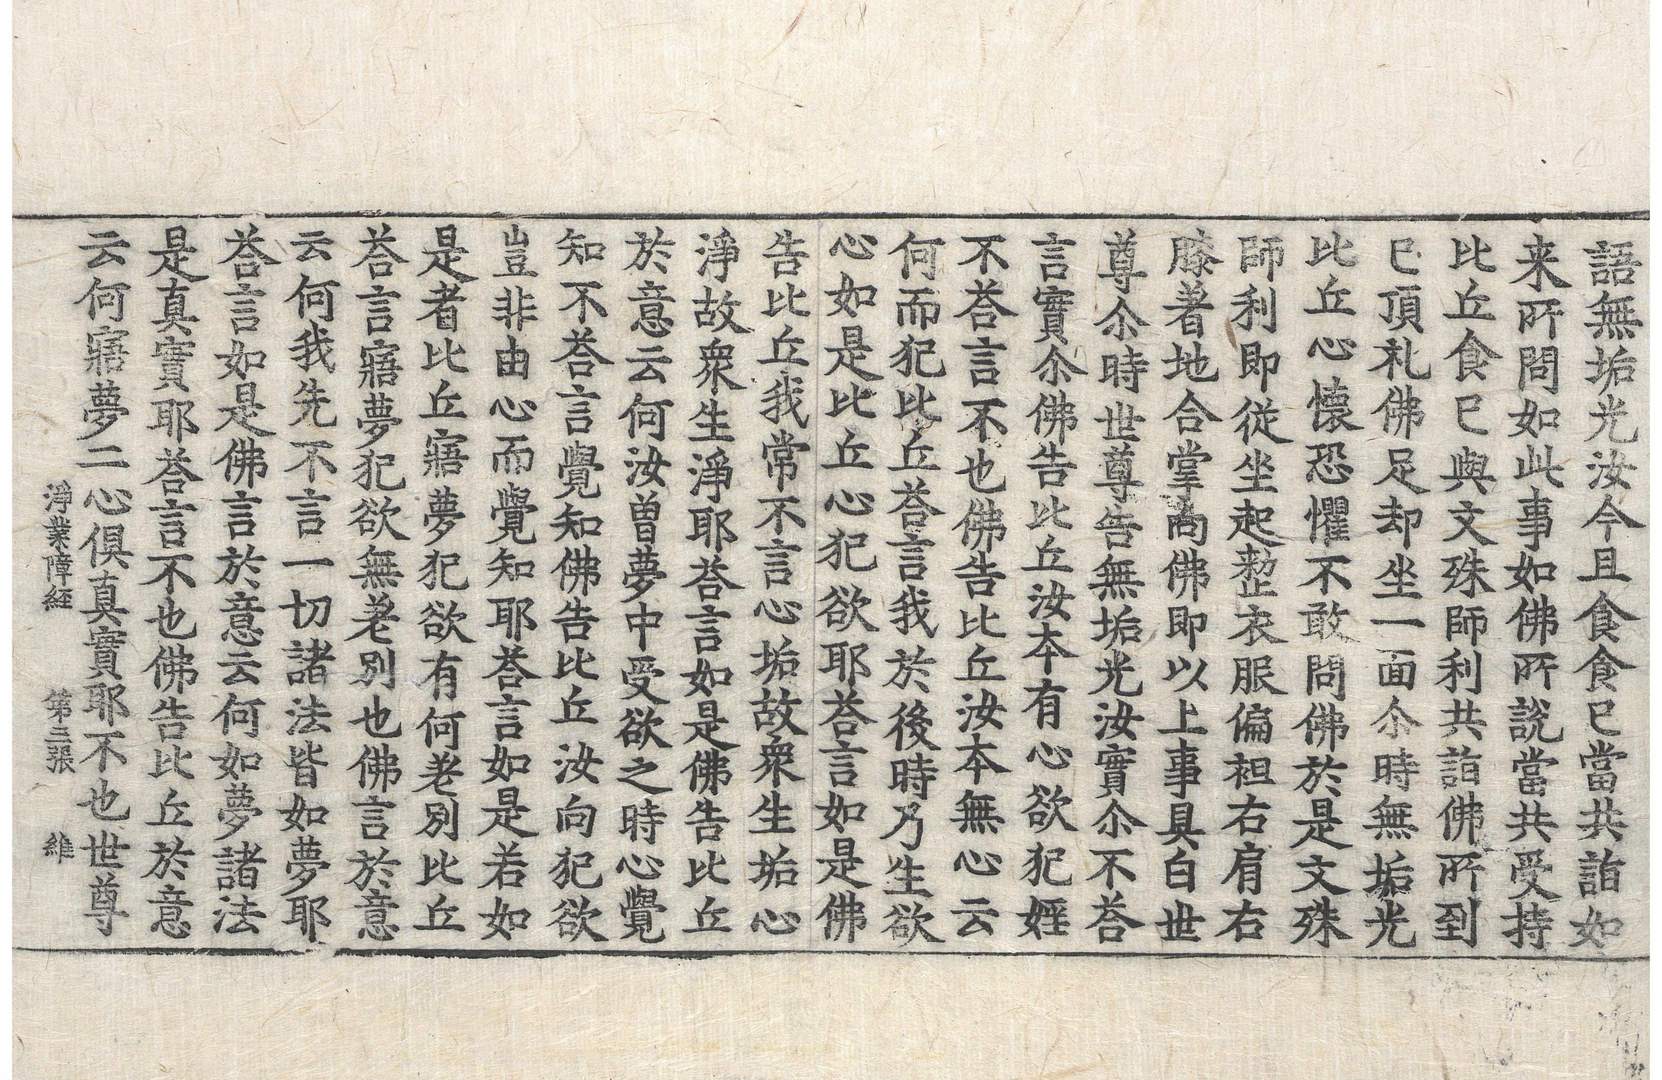 語無垢光汝今且食食已當共詣如
来所問如此事如佛所說當共受持
比丘食已與文殊師利共詣佛所到
已頂礼佛足却坐一面尒時無垢光
比丘心懷恐懼不敢問佛於是文殊
師利即從坐起整衣服偏袒右肩右
膝著地合掌向佛即以上事具白世
尊尒時世尊告無垢光汝實尒不荅
言實尒佛告比丘汝本有心欲犯婬
不荅言不也佛告比丘汝本無心云
何而犯比丘荅言我於後時乃生欲
心如是比丘心犯欲耶荅言如是佛
告比丘我常不言心垢故衆生垢心
淨故衆生淨耶荅言如是佛告比丘
於意云何汝曾夢中受欲之時心覺
知不荅言覺知佛告比丘汝向犯欲
豈非由心而覺知耶荅言如是若如
是者比丘寤夢犯欲有何差別比丘
荅言寤夢犯欲無差別也佛言於意
云何我先不言一切諸法皆如夢耶
荅言如是佛言於意云何如夢諸法
是真實耶荅言不也佛告比丘於意
云何寤夢二心俱真實耶不也世尊
淨業障經 第三張 維